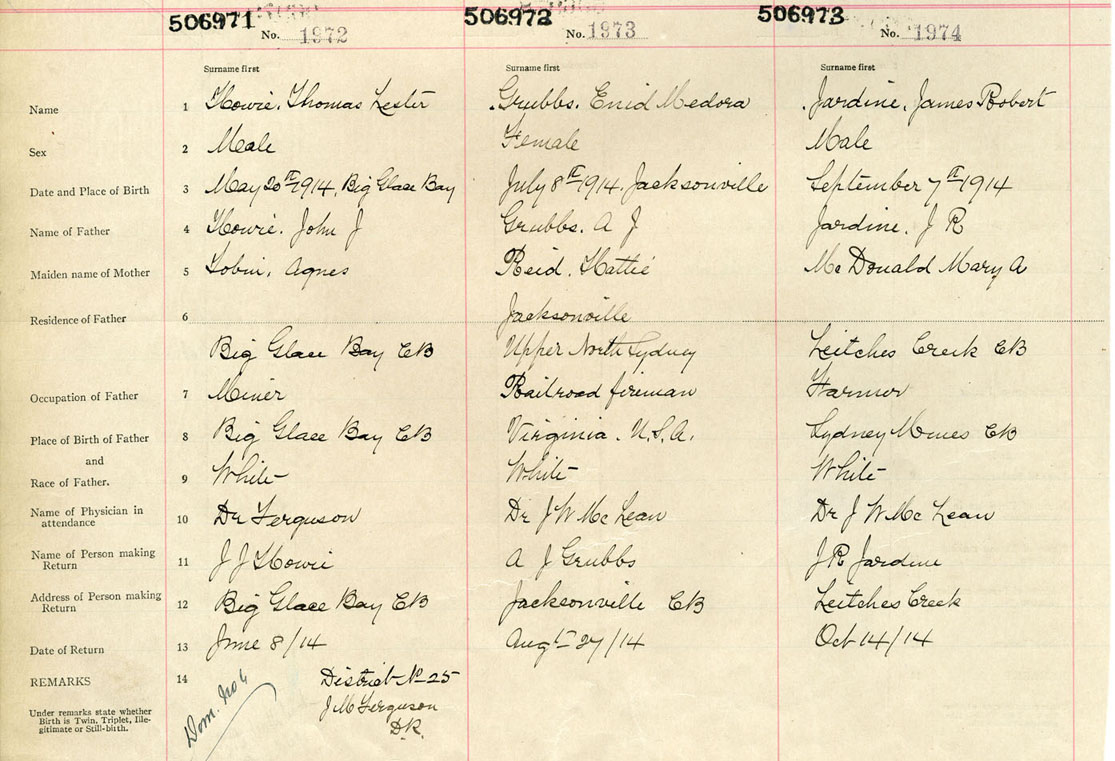 506971 506972 506973
No. 1972 No. 1973 No. 1974
Surname first Surname first Surname first
Name 1 Howie, Thomas Lester Grubbs, Enid Medora Jardine, James Robert
Sex 2 Male Female Male
Date and Place of Birth 3 May 20th 1914, Big Glace Bay July 8th 1914, Jacksonville September 7th 1914
Name of Father 4 Howie, John J Grubbs, A J Jardine, J R
Maiden name of Mother 5 Tobin, Agnes Reid, Hattie McDonald Mary A
Residence of Father 6 Jacksonville
Big Glace Bay CB Upper North Sydney Leitches Creek CB
Occupation of Father 7 Miner Railroad fireman Farmer
Place of Birth of Father 8 Big Glace Bay CB Virginia. U.S.A. Sydney Mines CB
and
Race of Father. 9 White White White
Name of Physician in
attendance 10 Dr Ferguson Dr J W McLean Dr J W McLean
Name of Person making
Return 11 J J Howie A J Grubbs J R Jardine
Address of Person making
Return 12 Big Glace Bay CB Jacksonville CB Leitches Creek
Date of Return 13 June 8/14 Augt 27/14 Oct 14/14
REMARKS 14 District No 25
J M Ferguson
D.R.
Dom. No 6
Under remarks state whether
Birth is Twin, Triplet, Ille-
gitimate or Still-birth.